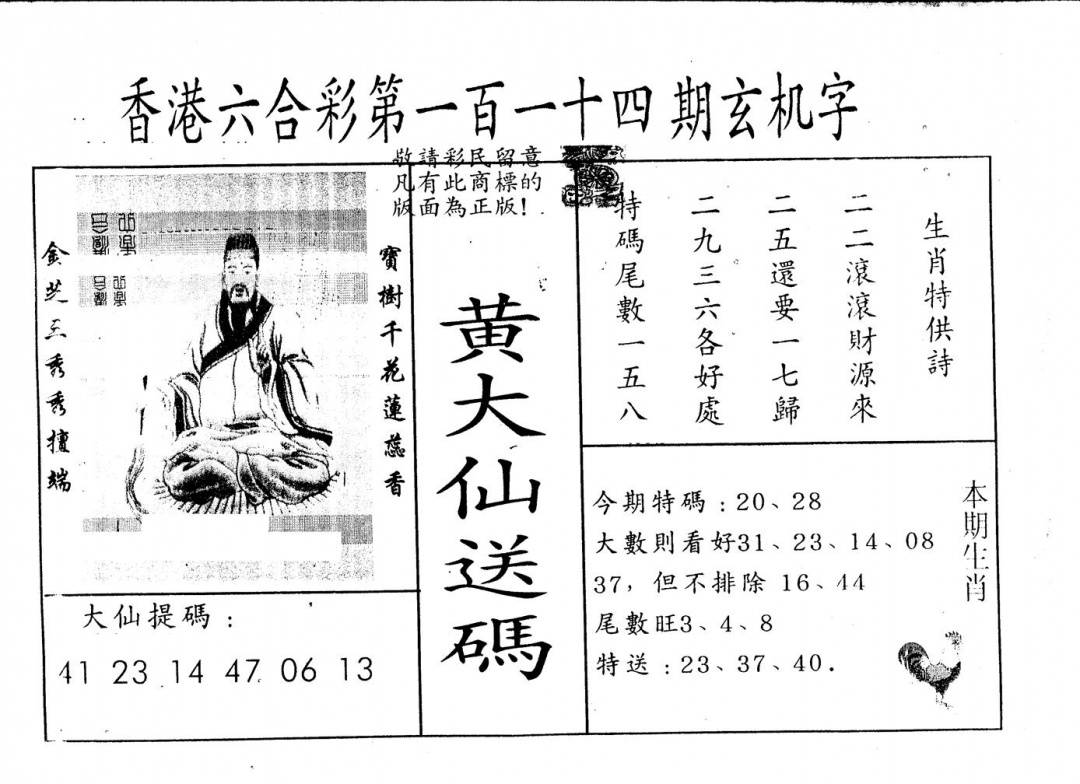 香港六合彩第一百一十四期玄机字
敬請彩民留意
凡有此商標的
版面為正版！
寶樹千花蓮蕊香
金芝三秀秀擅端
大仙提碼：
41 23 14 47 06 13
黄大仙送碼
生肖特供詩
二二滾滾財源來
二五還要一七歸
二九三六各好處
特碼尾數一五八
本期生肖
今期特碼：20、28
大數則看好31、23、14、08
37，但不排除 16、44
尾數旺3、4、8
特送：23、37、40．